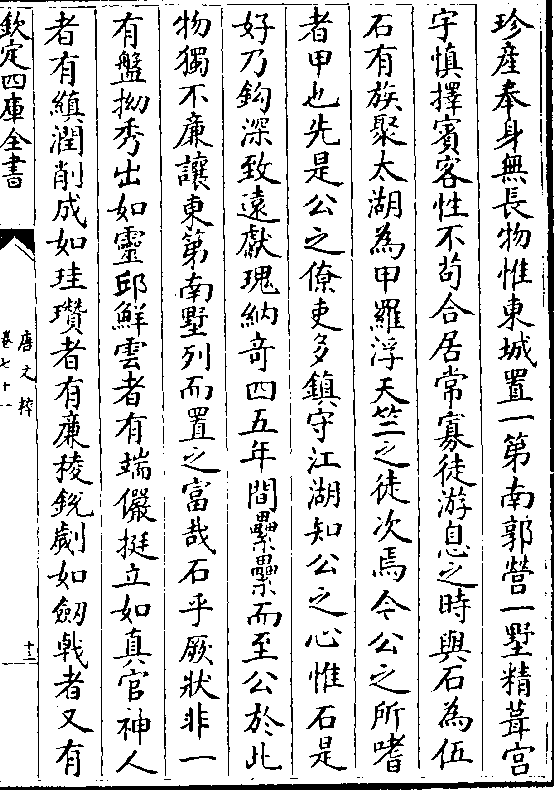 珍産奉身無長物惟東城置一第南郭營一墅精葺宫
宇慎擇賓客性不苟合居常寡徒游息之時與石為伍
石有族聚太湖為甲羅浮天竺之徒次焉今公之所嗜
者甲也先是公之僚吏多鎮守江湖知公之心惟石是
好乃鈎深致遠獻瑰納竒四五年間纍纍而至公於此
物獨不亷讓東第南墅列而置之富哉石乎厥狀非一
有盤拗秀出如靈邱鮮雲者有端儼挺立如真官神人
者有縝潤削成如珪瓚者有亷稜銳劌如劒㦸者又有
欽定四庫全書
唐文粹
卷七十一
十三